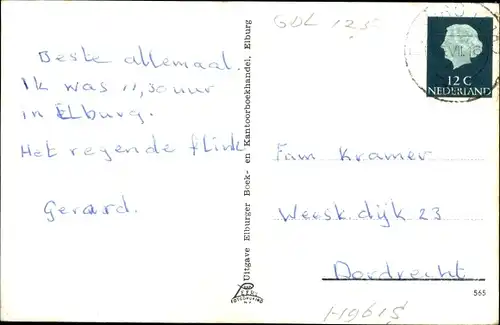 Beste allemaal.
Ik was 11,30 uur
in Elburg.
Het regende flink
Gerard.
Uitgave Elburger Boek- en Kantoorboekhandel, Elburg
GDL 125
12 C
NEDERLAND
Fam Kramer
Weeskdijk 23
Dordrecht
565